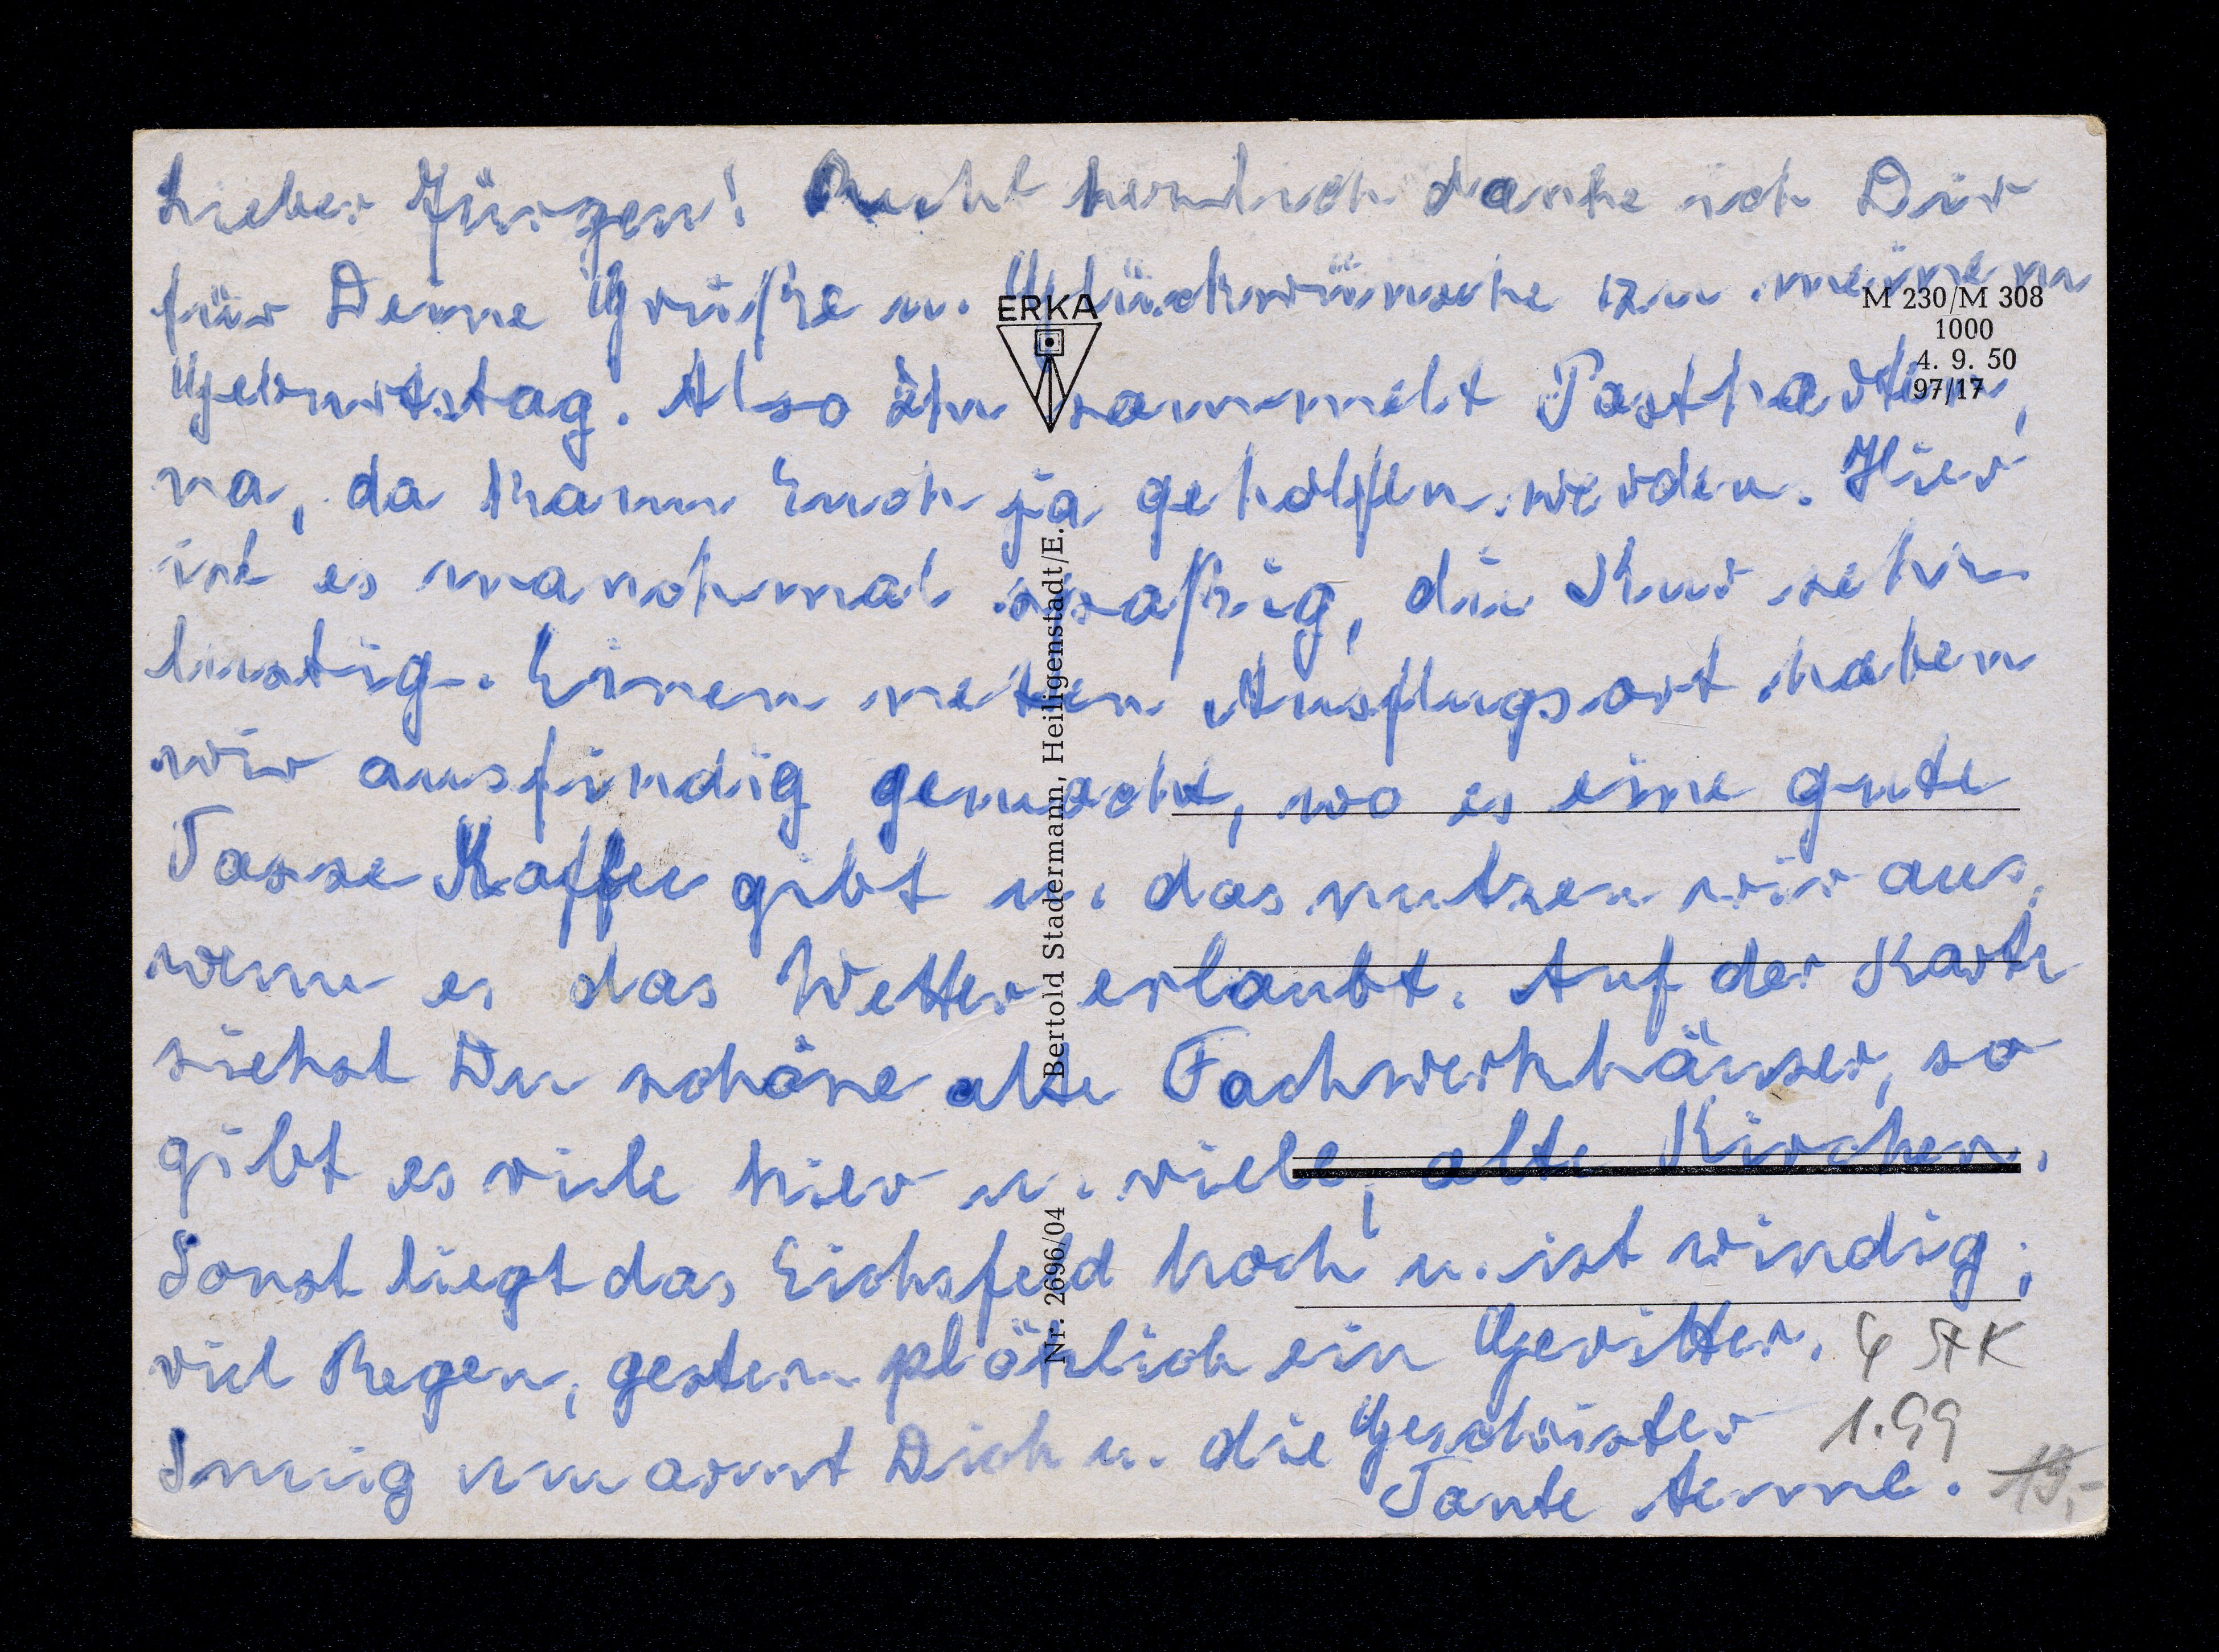 Lieber Jürgen! Recht herzlich danke ich Dir
für Deine Grüße u. Glückwünsche zu meinem
Geburtstag. Also Ihr sammelt Postkarten,
na, da kann Euch ja geholfen werden. Hier
ist es manchmal spaßig, die Kur sehr
lustig. Einen netten Ausflugsort haben
wir ausfindig gemacht, wo es eine gute
Tasse Kaffee gibt u. das nutzen wir aus,
wenn es das Wetter erlaubt. Auf der Karte
siehst Du schöne alte Fachwerkhäuser, so
gibt es viele hier u. viele, alte Kirchen.
Sonst liegt das Eichsfeld hoch u. ist windig;
viel Regen, gestern plötzlich ein Gewitter.
Innig umarmt Dich u. die Geschwister
Tante Aenne.
4 STK
1.99
19,-
ERKA
M 230/M 308
1000
4. 9. 50
97/17
Nr. 2696/04 Bertold Stadermann, Heiligenstadt/E.